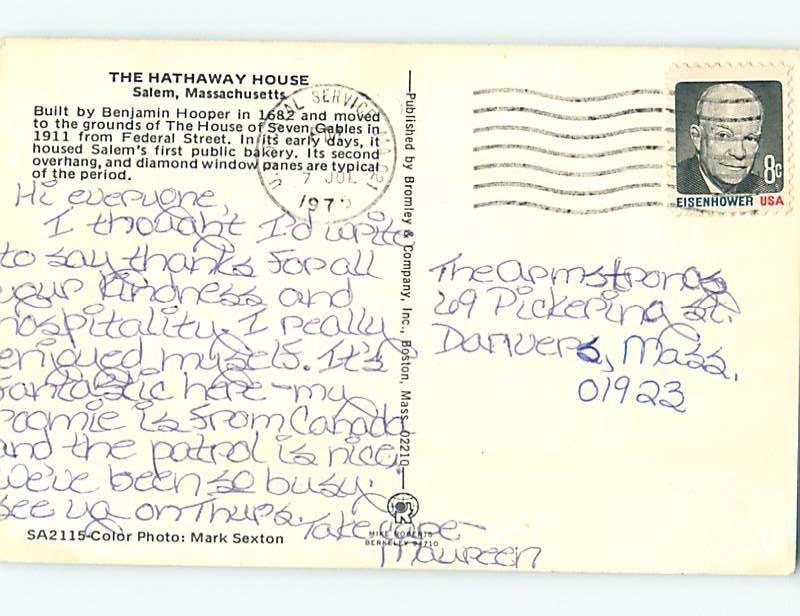 THE HATHAWAY HOUSE
Salem, Massachusetts
Built by Benjamin Hooper in 1682 and moved
to the grounds of The House of Seven Gables in
1911 from Federal Street. In its early days, it
housed Salem's first public bakery. Its second
overhang, and diamond window panes are typical
of the period.
Hi everyone,
I thought I'd write
to say thanks for all
your kindness and
hospitality. I really
enjoyed myself. It's
fantastic here-my
roomie is from Canada
and the patrol is nice.
We've been so busy.
see ya on Thurs. Take care-
Maureen
SA2115-Color Photo: Mark Sexton
Published by Bromley & Company, Inc., Boston, Mass. 02210
MIKE ROBERTS
BERKELEY 94710
SERVICE MA 021
7 JUL
197
8c
EISENHOWER USA
The Armstrongs
69 Pickering St.
Danvers, Mass.
01923